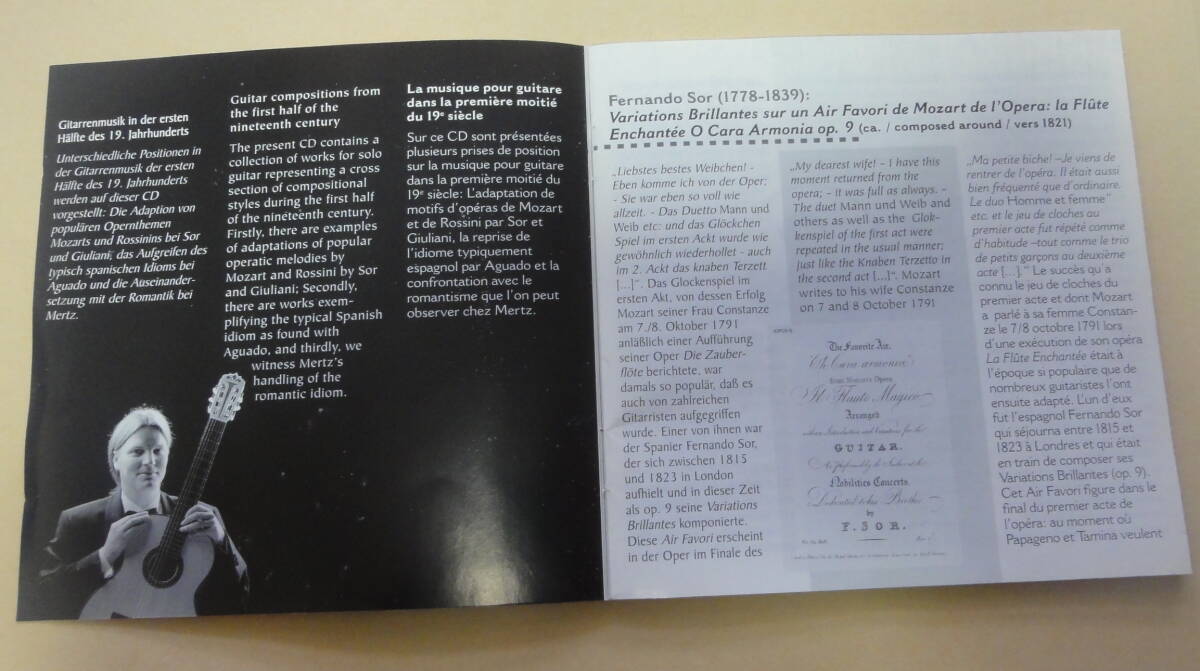 Gitarrenmusik in der ersten
Hälfte des 19. Jahrhunderts
Unterschiedliche Positionen in
der Gitarrenmusik der ersten
Hälfte des 19. Jahrhunderts
werden auf dieser CD
vorgestellt: Die Adaption von
populären Opernthemen
Mozarts und Rossinins bei Sor
und Giuliani, das Aufgreifen des
typisch spanischen Idioms bei
Aguado und die Auseinander-
setzung mit der Romantik bei
Mertz.
Guitar compositions from
the first half of the
nineteenth century
The present CD contains a
collection of works for solo
guitar representing a cross
section of compositional
styles during the first half
of the nineteenth century.
Firstly, there are examples
of adaptations of popular
operatic melodies by
Mozart and Rossini by Sor
and Giuliani; Secondly,
there are works exem-
plifying the typical Spanish
idiom as found with
Aguado, and thirdly, we
witness Mertz's
handling of the
romantic idiom.
La musique pour guitare
dans la première moitié
du 19e siècle
Sur ce CD sont présentées
plusieurs prises de position
sur la musique pour guitare
dans la première moitié du
19e siècle: L'adaptation de
motifs d'opéras de Mozart
et de Rossini par Sor et
Giuliani, la reprise de
l'idiome typiquement
espagnol par Aguado et la
confrontation avec le
romantisme que l'on peut
observer chez Mertz.
Fernando Sor (1778-1839):
Variations Brillantes sur un Air Favori de Mozart de l'Opera: la Flûte
Enchantée O Cara Armonia op. 9 (ca. / composed around / vers 1821)
„Liebstes bestes Weibchen! -
Eben komme ich von der Oper;
- Sie war eben so voll wie
allzeit. - Das Duetto Mann und
Weib etc: und das Glöckchen
Spiel im ersten Ackt wurde wie
gewöhnlich wiederhollet - auch
im 2. Ackt das knaben Terzett
[...]“. Das Glockenspiel im
ersten Akt, von dessen Erfolg
Mozart seiner Frau Constanze
am 7./8. Oktober 1791
anläßlich einer Aufführung
seiner Oper Die Zauber-
flöte berichtete, war
damals so populär, daß es
auch von zahlreichen
Gitarristen aufgegriffen
wurde. Einer von ihnen war
der Spanier Fernando Sor,
der sich zwischen 1815
und 1823 in London
aufhielt und in dieser Zeit
als op. 9 seine Variations
Brillantes komponierte.
Diese Air Favori erscheint
in der Oper im Finale des
„My dearest wife! – I have this
moment returned from the
opera; – it was full as always. –
The duet Mann und Weib and
others as well as the Glok-
kenspiel of the first act were
repeated in the usual manner;
just like the Knaben Terzetto in
the second act [...]“. Mozart
writes to his wife Constanze
on 7 and 8 October 1791
The Favorite Air,
Oh Cara armonia
from Mozarts Opera
Il Flauto Magico
Arranged
with an Introduction and Variations for the
GUITAR.
As Performed by the Author at the
Nobilities Concerts.
Dedicated to his Brother
by
F. SOR.
„Ma petite biche! –Je viens de
rentrer de l'opéra. Il était aussi
bien fréquenté que d'ordinaire.
Le duo Homme et femme“
etc. et le jeu de cloches au
premier acte fut répété comme
d'habitude –tout comme le trio
de petits garçons au deuxième
acte [...].“ Le succès qu'a
connu le jeu de cloches du
premier acte et dont Mozart
a parlé à sa femme Constan-
ze le 7/8 octobre 1791 lors
d'une exécution de son opéra
La Flûte Enchantée était à
l'époque si populaire que de
nombreux guitaristes l'ont
ensuite adapté. L'un d'eux
fut l'espagnol Fernando Sor
qui séjourna entre 1815 et
1823 à Londres et qui était
en train de composer ses
Variations Brillantes (op. 9).
Cet Air Favori figure dans le
final du premier acte de
l'opéra: au moment où
Papageno et Tamina veulent